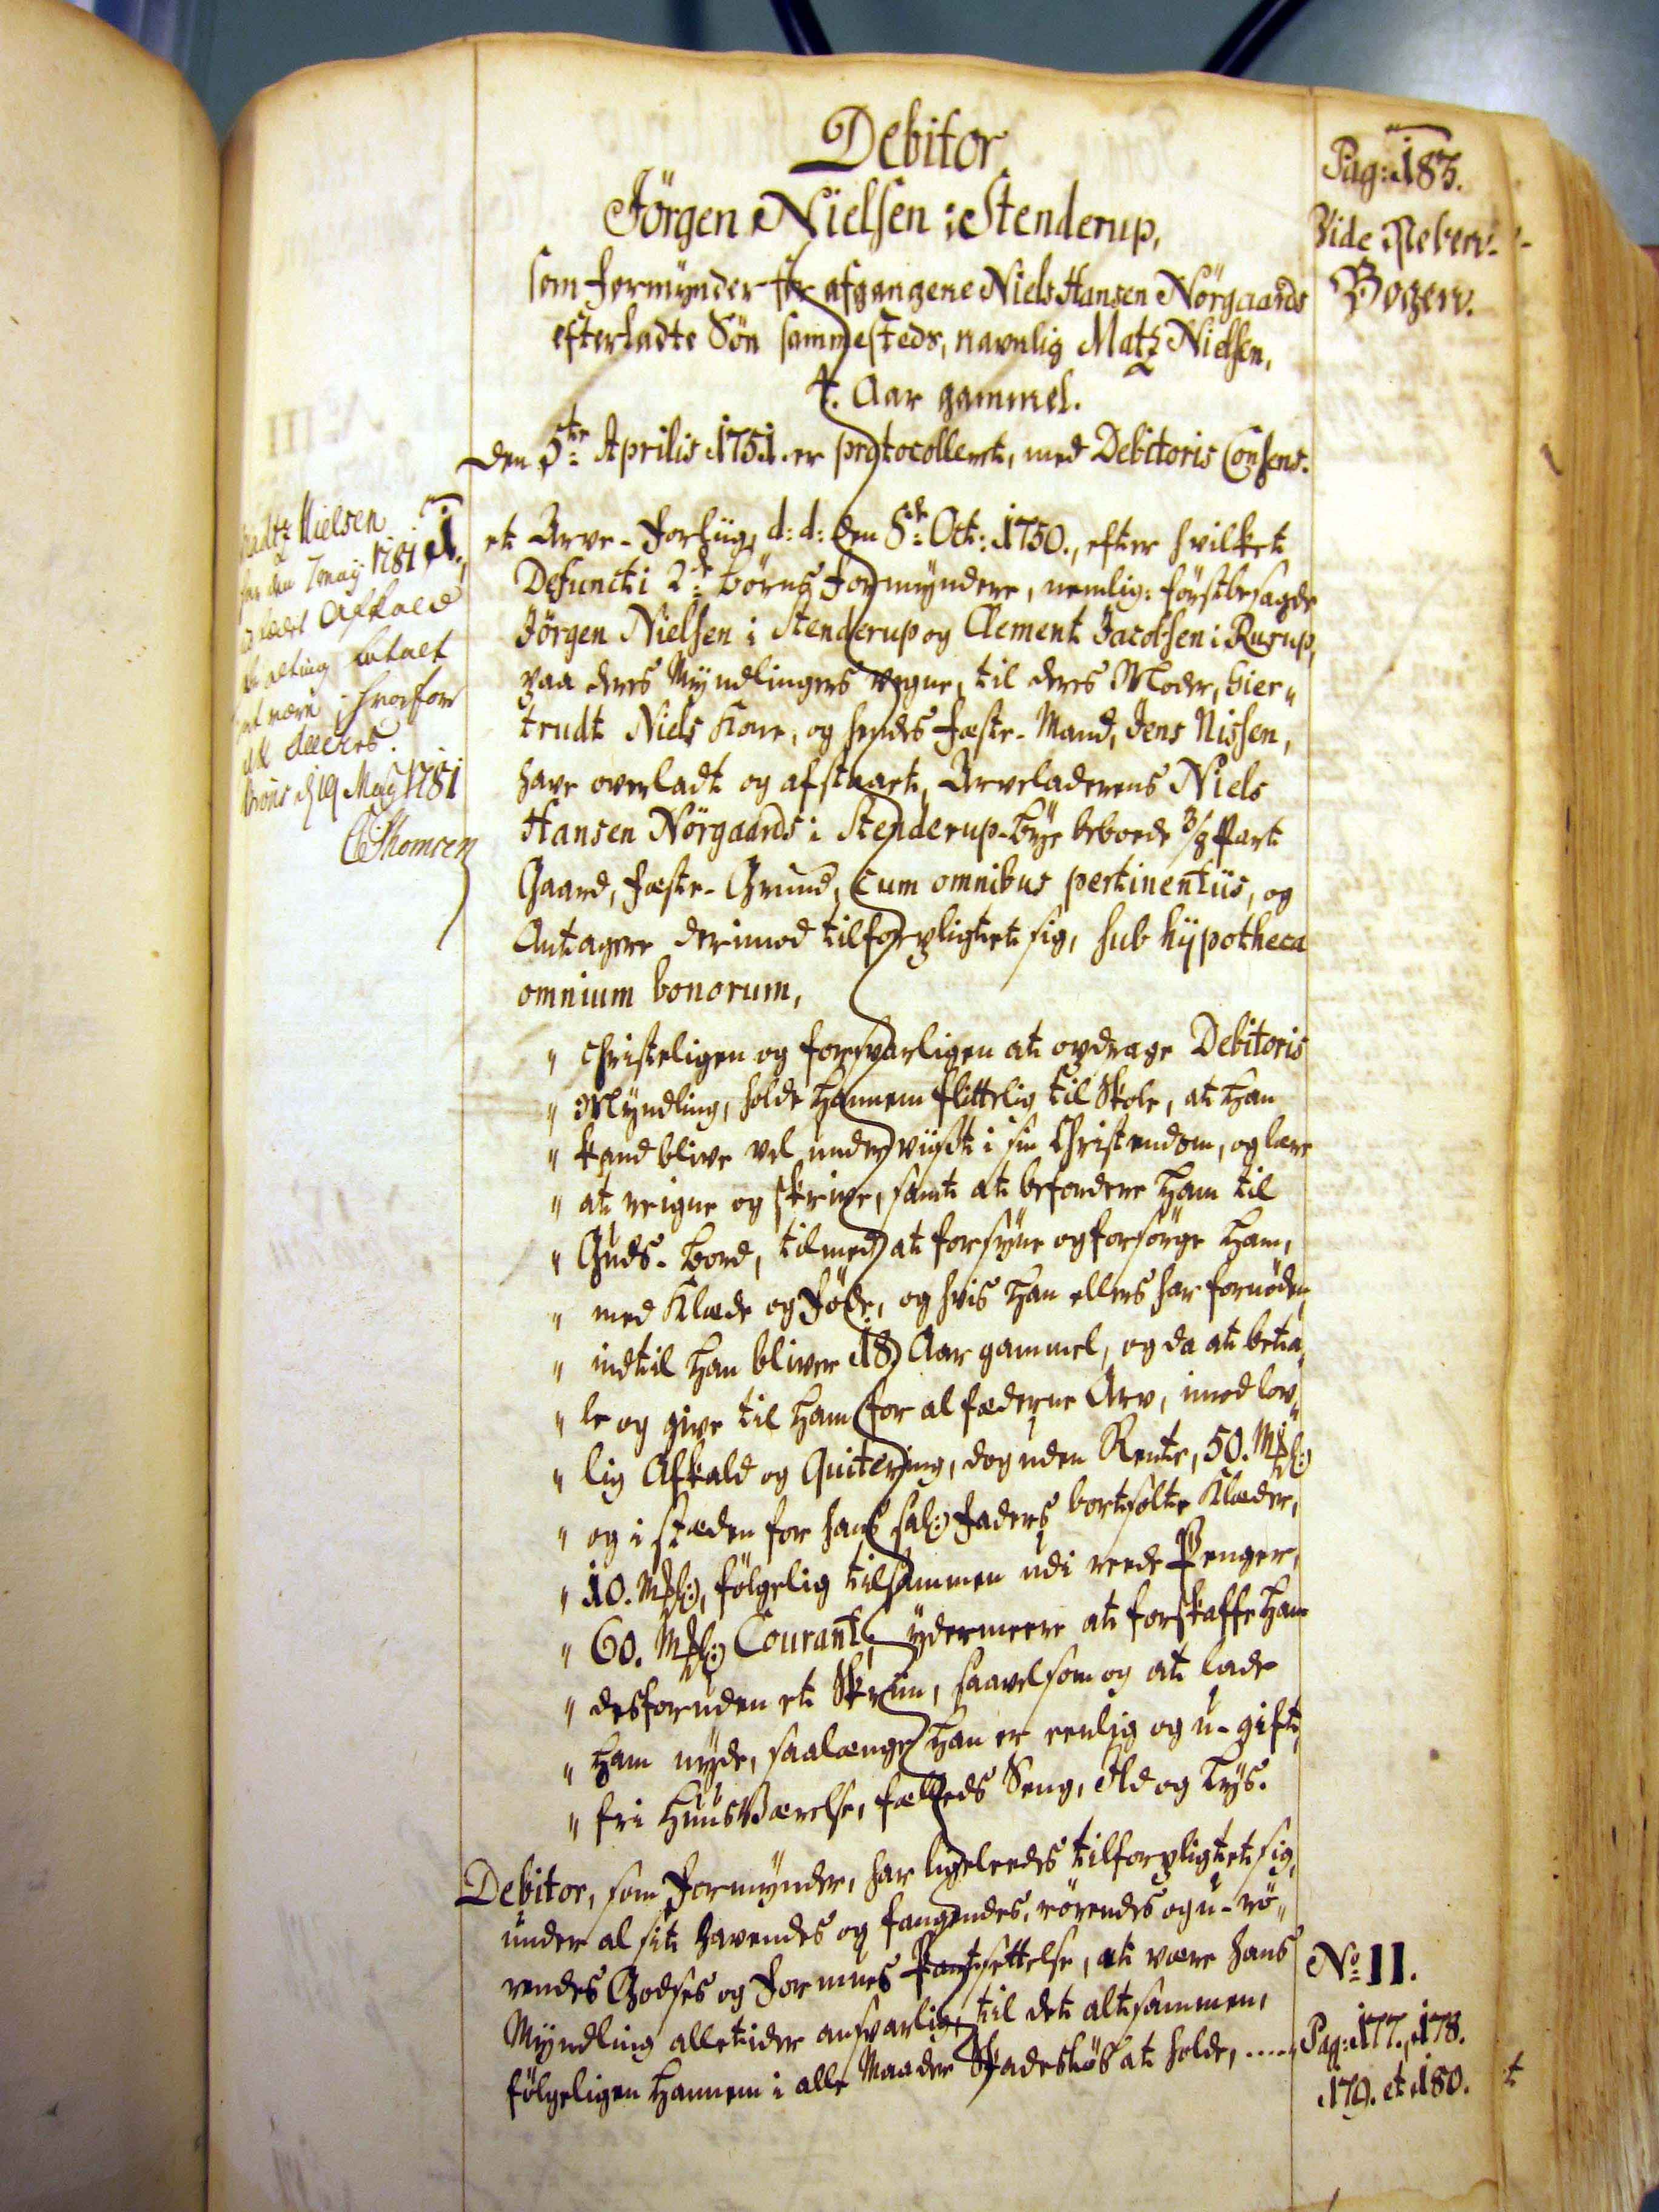 Debitor
Jörgen Nielsen i Stenderup,
som Formÿnder for afgangene Niels Hansen Nörgaards
efterladte Sön sammesteds, navnlig Matz Nielsen,
4. Aar gammel.
Pag: 183.
Vide Neben-
Bogen.
Den 5te Aprilis 1751. er protocollert, med Debitoris Consens.
et Arve-Forliig, d: d: den 8de Oct: 1750., efter hvilket
Defuncti 2de Börns Formÿndere, nemlig: förstbesagde
Jörgen Nielsen i Stenderup og Clement Jacobsen i Rurup,
paa deres Mÿndlingers Vegne, til deres Moder, Gier„
trudt Niels Kone, og hendes Fæste-Mand, Jens Nissen,
have overladt og afstaaet, Arveladerens Niels
Hansen Nörgaards i Stenderup-Bÿe beboede 3/8 Part
Gaard, Fæste-Grund, cum omnibus pertinentiis, og
Antagere derimod tilforpligtet sig, sub hÿpotheca
omnium bonorum,
„ christeligen og forsvarligen at opdrage Debitoris
„ Mÿndling, holde Hannem flittelig til Skole, at Han
„ kand blive vel underviist i sin Christendom, og lære
„ at reigne og skrive, samt at befordere Ham til
„ Guds-Bord, tilmed at forsÿne og forsörge Ham,
„ med Klæde og Föde, og hvis Han ellers har fornöden,
„ indtil Han bliver 18 Aar gammel, og da at beta„
„ le og give til Ham for al fæderne Arv, imod lov„
„ lig Afkald og Quitering, dog uden Rente, 50. Mkl:
„ og i stæden for hans sal: Faders bortsolte Klæder,
„ 10. Mkl:, fölgelig tilsammen udi reede Penger,
„ 60. Mkl: Courant, ÿdermeere at forskaffe Ham
„ desforuden et Skriin, saavelsom og at lade
„ Ham nÿde, saalænge Han er eenlig og u-gift,
„ fri HuusVærelse, fælleds Seng, Ild og Lÿs.
Debitor, som Formÿnder, har ligeleedes tilforpligtet sig,
under al sit havendes og faaendes, rörendes og u-rö„
rendes Godses og Formues Pantsettelse, at være hans
Mÿndling alletider ansvarlig, til det altsammen,
fölgeligen Hannem i alle Maader Skadeslös at holde, .....
No 11.
Pag: 177., 178.
179. et 180.
1.
Nielsen
har den 7 Maÿ 1781
ladet Afkald
at alting betalt
at være, hvorfor
deleres.
d 19 Maÿ 1781
CThomsen